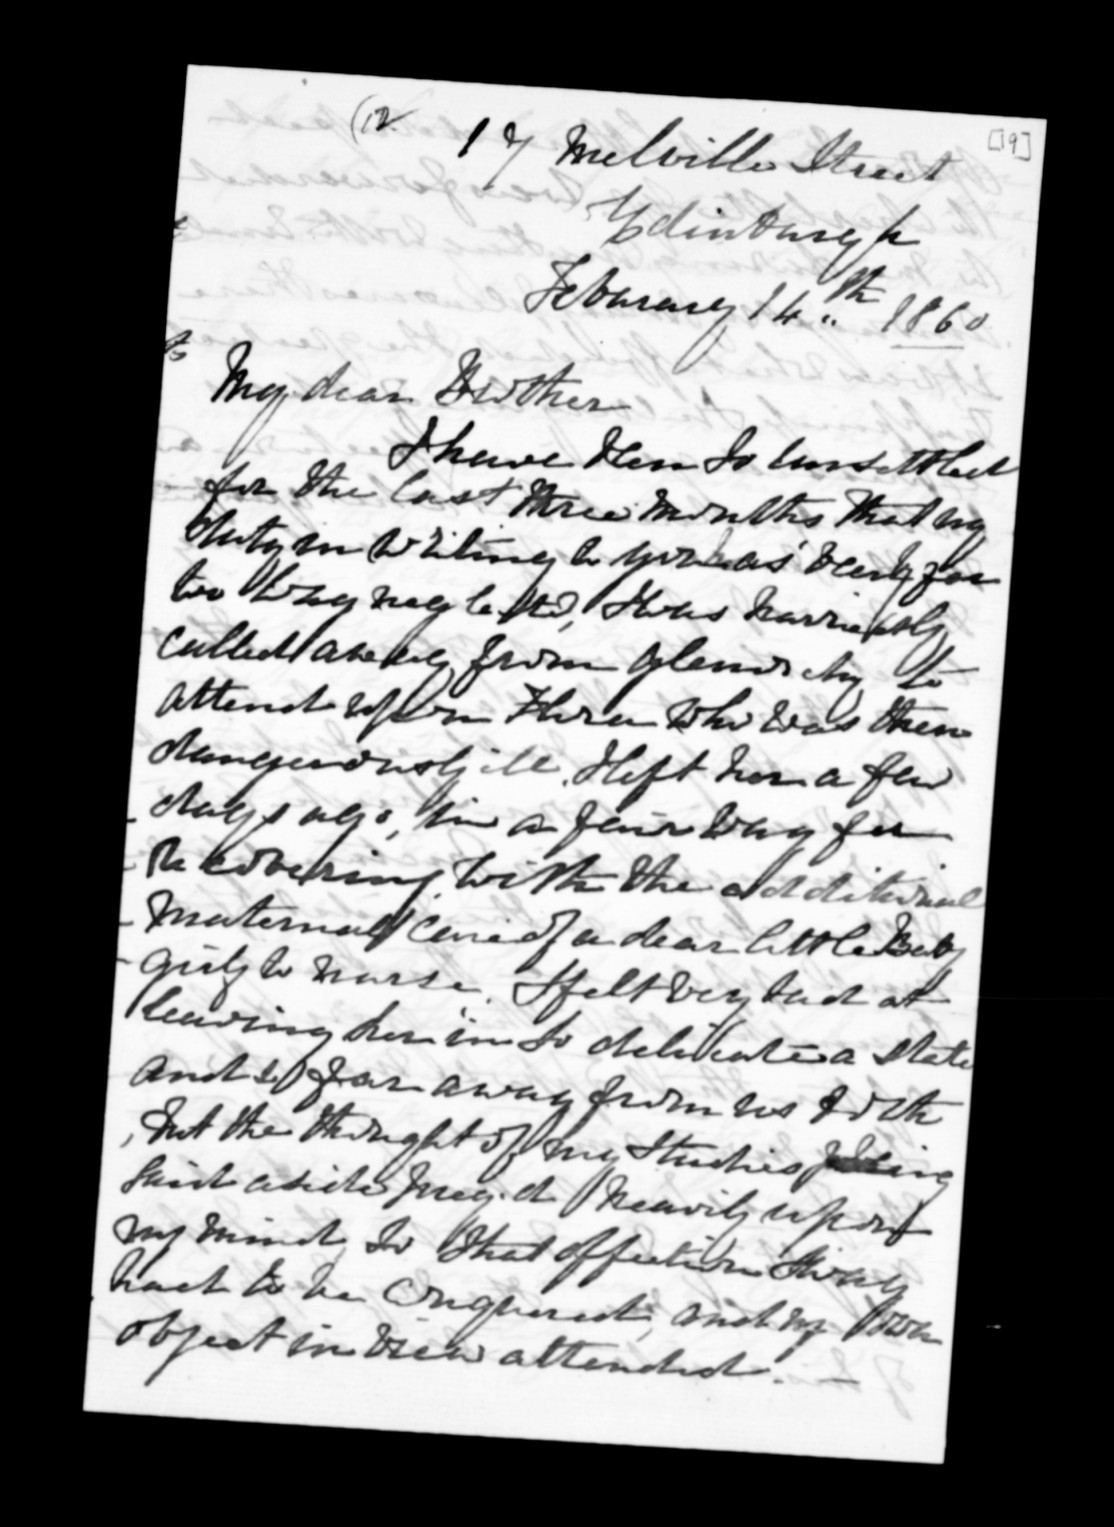 (12.
[19]
17 Melville Street
Edinburgh
February 14..th 1860
My dear Brother
I have been so unsettled
for the last three months that my
duty in writing to you has been far
too long neglected, I was hurriedly
called away from Glenorchy to
attend upon Flora who was then
dangerously ill. I left her a few
days ago, in a fair way for
recovering with the additional
maternal care of a dear little Baby
girly to nurse. I felt very bad at
leaving her in so delicate a state
and so far away from us both
, but the thought of my studies being
laid aside preyed heavily upon
my mind, so that affection sway
had to be conquered, and my own
object in view attended. —